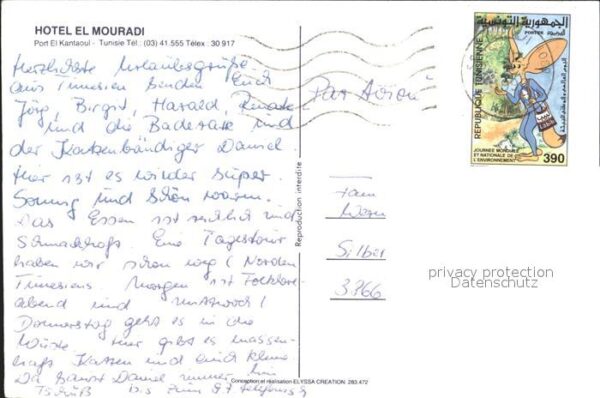 HOTEL EL MOURADI
Port El Kantaoui - Tunisie Tél.: (03) 41.555 Télex : 30 917
Herzlichste Urlaubsgrüße
aus Tunesien senden Euch
Jörg, Birgit, Harald, Renate
und die Baderatte und
der Katzenbändiger Daniel
Hier ist es wieder super.
Sonnig und schön warm.
Das Essen ist reichlich und
schmackhaft. Eine Tagestour
haben wir schon weg (Norden
Tunesiens. Morgen ist Folklore-
abend und Mittwoch/
Donnerstag geht es in die
Wüste. Hier gibt es massen-
haft Katzen und auch kleine.
Da saust Daniel immer hin
Tschüß Bis zum
Par Avion
Fam
Silber
REPUBLIQUE TUNISIENNE
الجمهورية التونسية
POSTES البريد
JOURNEE MONDIALE
ET NATIONALE DE
L'ENVIRONNEMENT
390
Reproduction interdite
Conception et réalisation-ELYSSA CREATION 283.472
privacy protection
Datenschutz